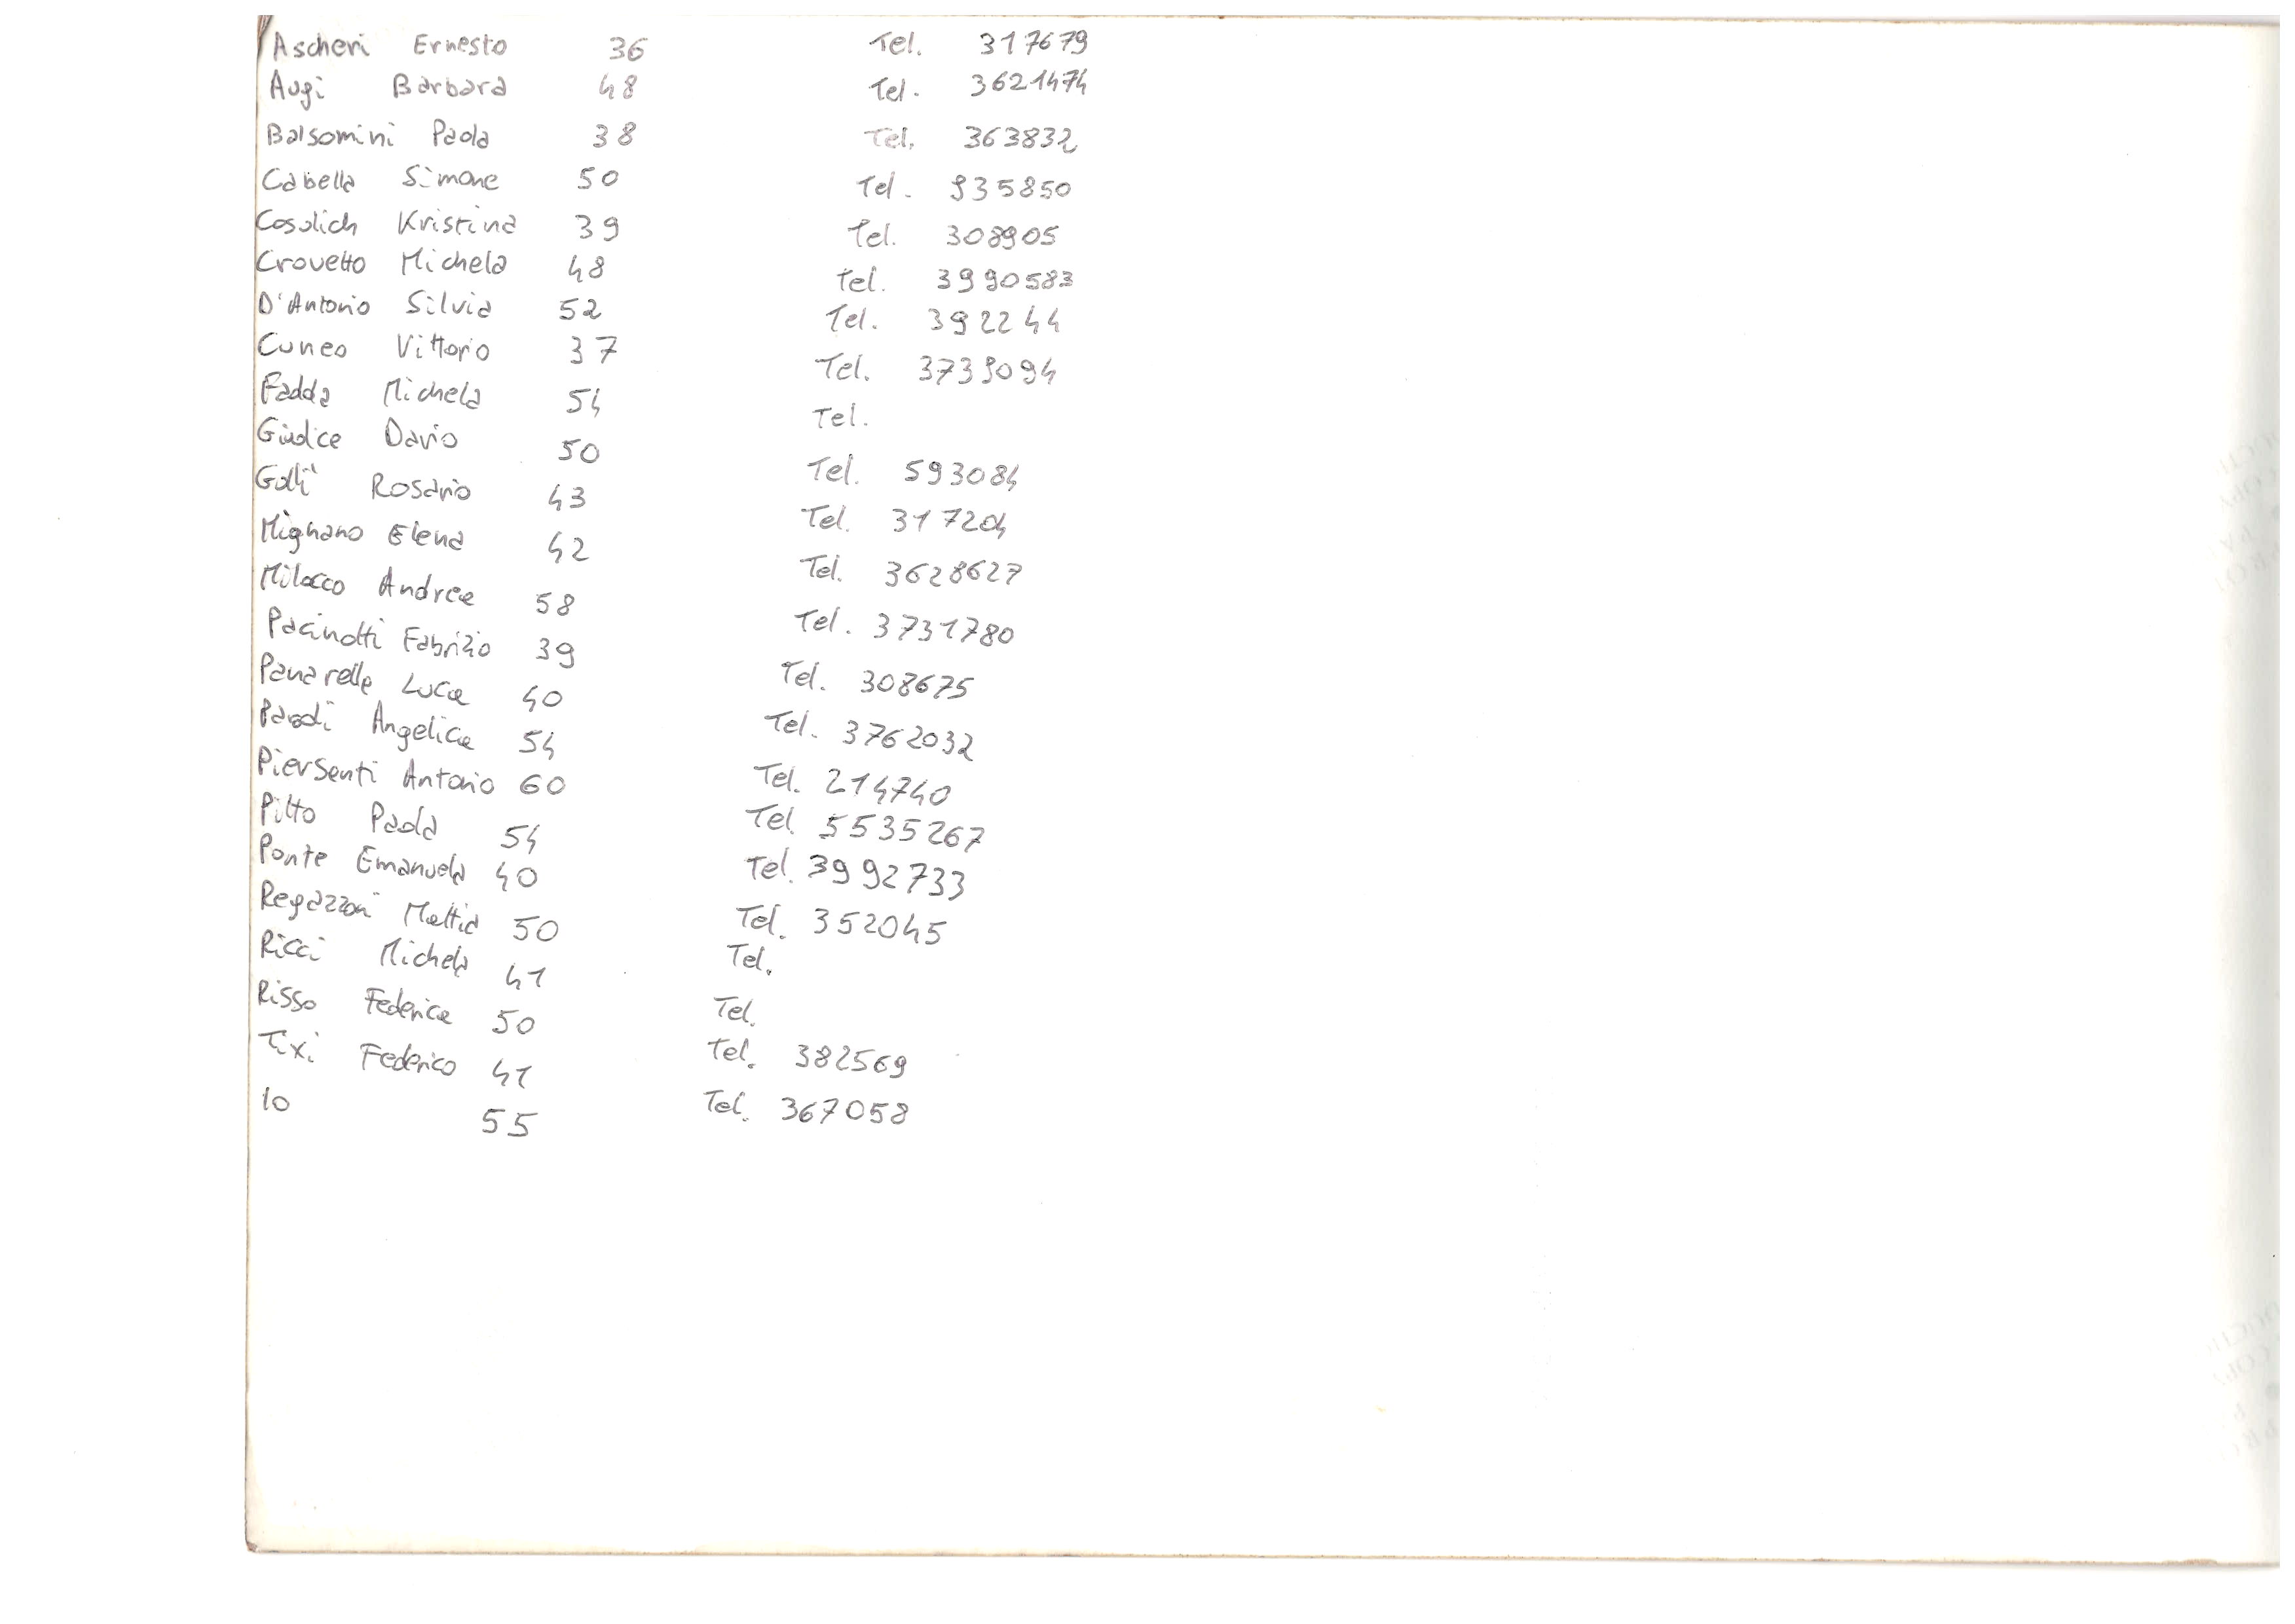 Ascheri Ernesto 36 Tel. 317679
Augi Barbara 48 Tel. 3621474
Balsomini Paola 38 Tel. 363832
Cabella Simone 50 Tel. 935850
Cosulich Kristina 39 Tel. 308905
Crovetto Michela 48 Tel. 3990583
D'Antonio Silvia 52 Tel. 392244
Cuneo Vittorio 37 Tel. 3739094
Fadda Michela 54 Tel.
Giudice Dario 50 Tel. 593084
Gollì Rosario 43 Tel. 317204
Mignano Elena 42 Tel. 3628627
Milocco Andrea 58 Tel. 3731780
Pacinotti Fabrizio 39 Tel. 308675
Panarello Luca 40 Tel. 3762032
Parodi Angelica 54 Tel. 214740
Piersenti Antonio 60 Tel. 5535267
Pitto Paola 54 Tel. 3992733
Ponte Emanuela 40 Tel. 352045
Regazzoni Mattia 50 Tel.
Ricci Michela 41 Tel.
Risso Federica 50 Tel. 382569
Tixi Federico 41 Tel. 367058
Io 55